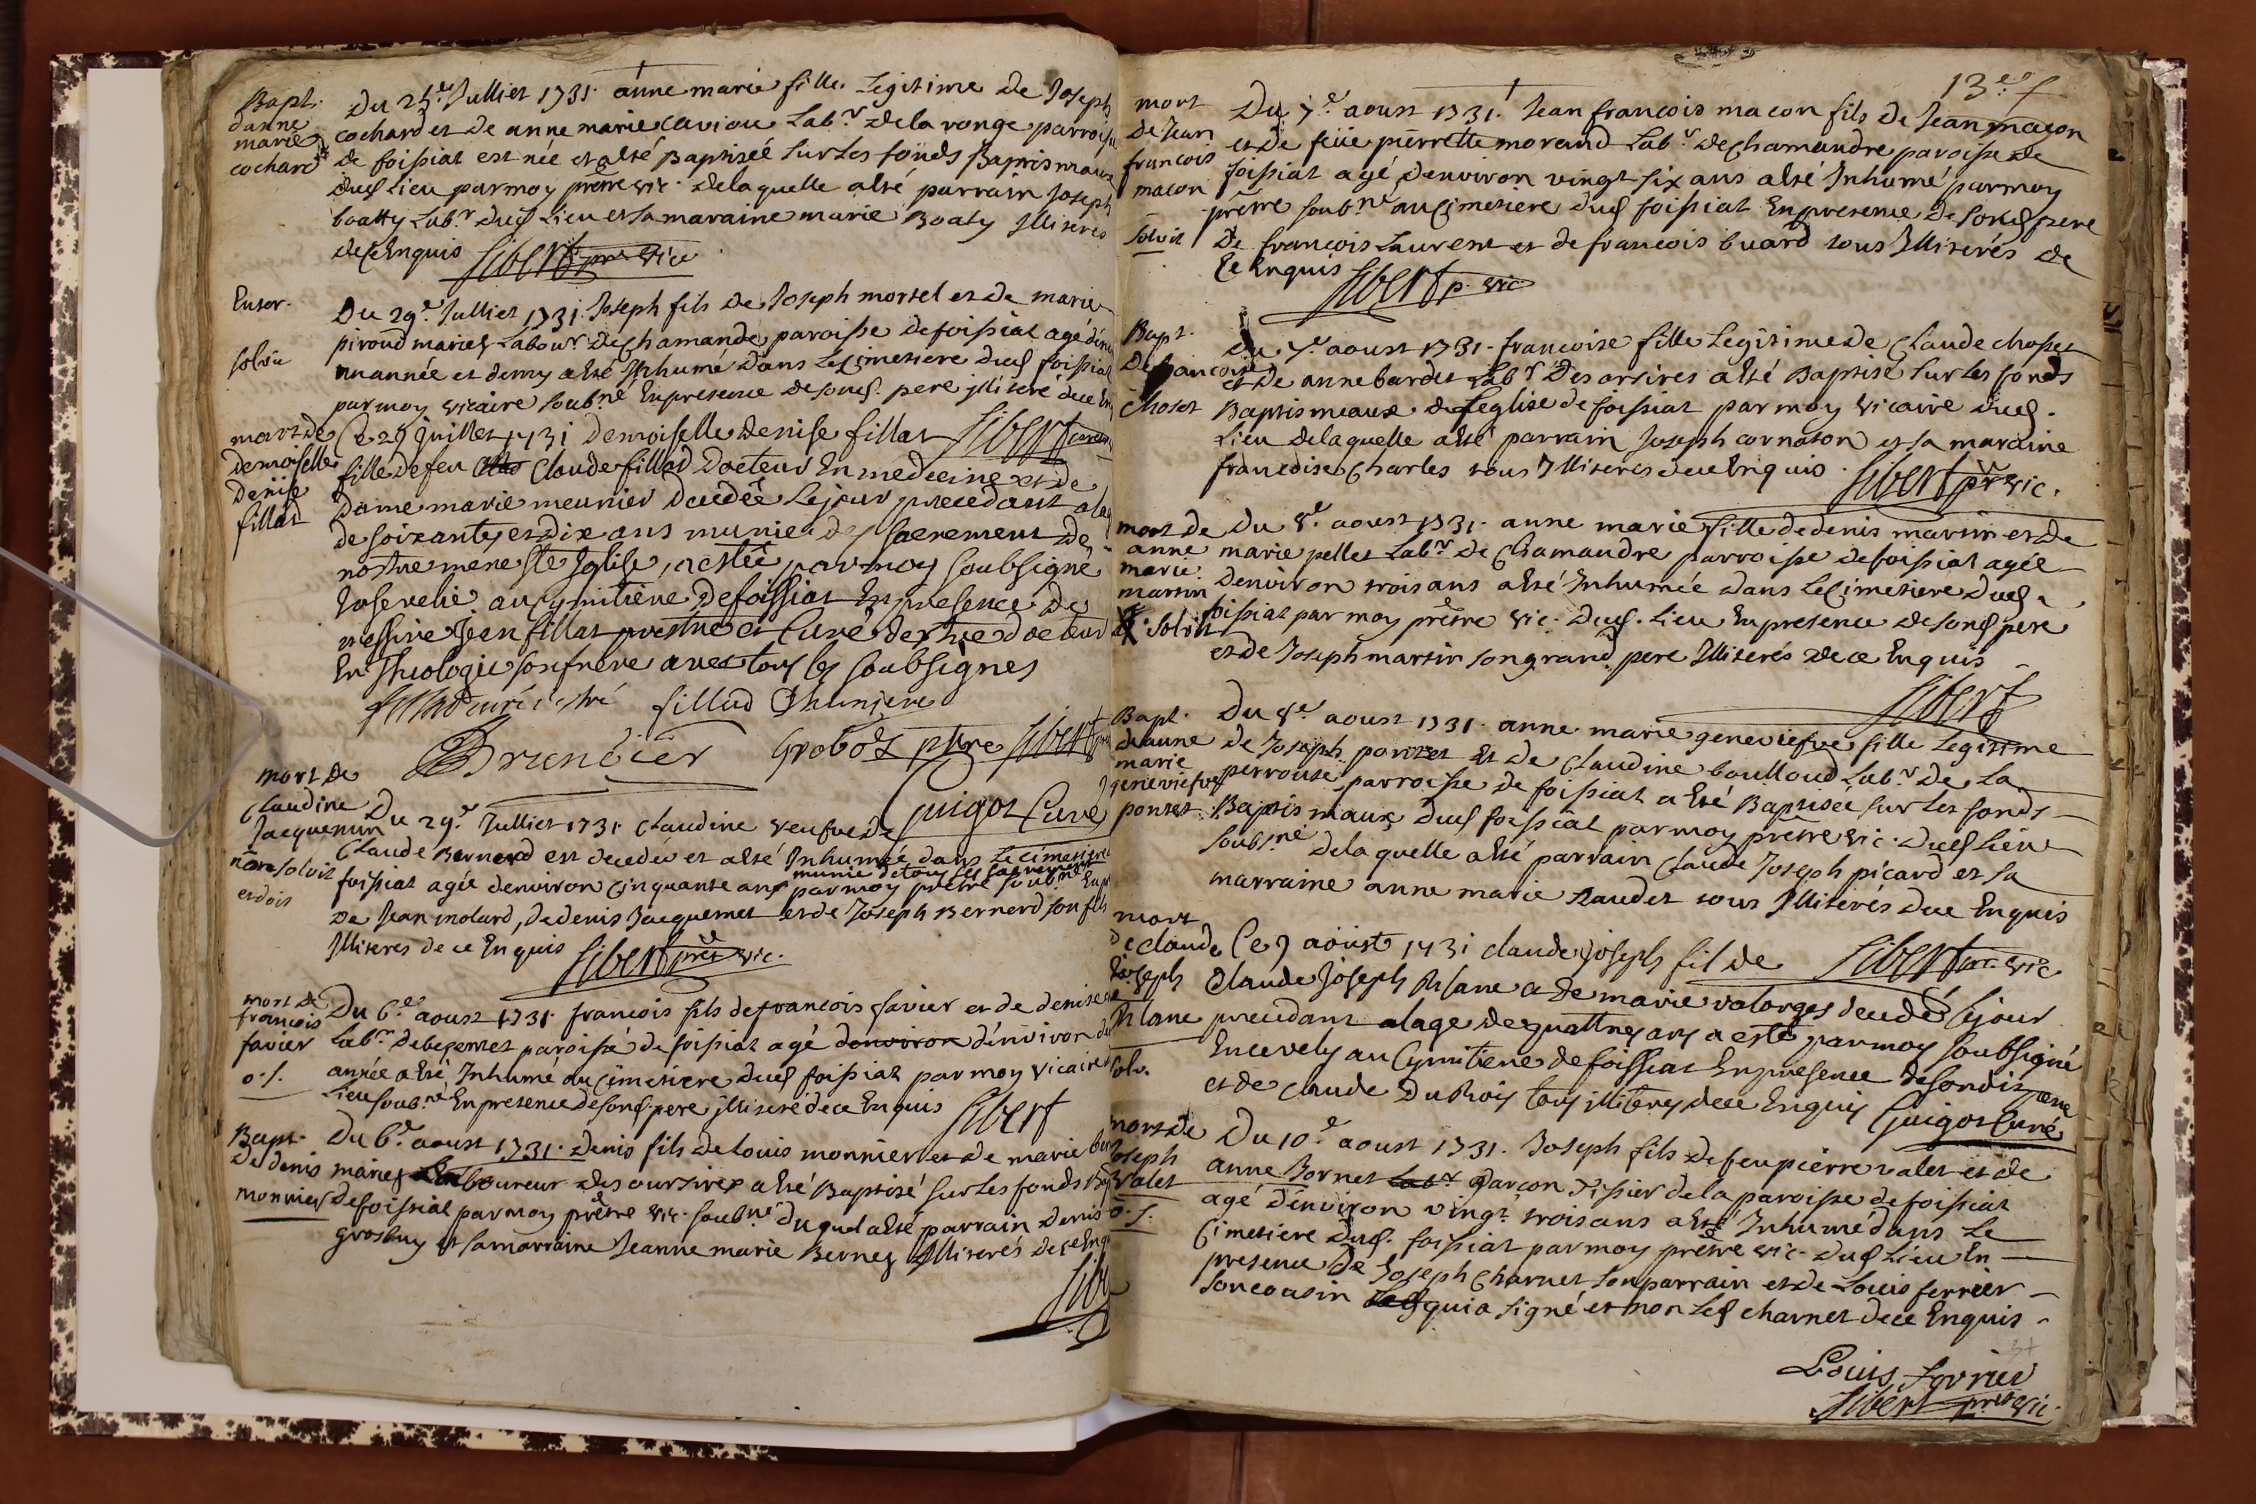 Bapt.
danne
marie
cochard
Du 25e Julliet 1731. anne marie fille Legitime De Joseph
cochard et De anne marie caviou Labr. De la ronge parroisse
de foissiat est née et a été Baptiseé sur Les fonds Baptismaux
dud Lieu par moy prêtre vic. De laquelle a été parrain Joseph
boatty Labr. dud Lieu et sa maraine marie Boaty Illiterés
de ce Enquis Sibert pre vic
Enter.
solvit
Du 29e Julliet 1731. Joseph fils De Joseph mortel et De marie
piroud mariés Labour. De chamande paroisse de foissiat agé d'en
un année et demy a été Inhumé Dans Le cimetiere dud foissiat
par moy vicaire soubné En presence de sond. pere illiteré de ce En
Sibert
mort de
demoiselle
Denise
fillat
Ce 29 Juillet 1731 demoiselle denise fillat
fille de feu Claude fillod Docteur En medecine et de
Dame marie meunier décedée Le jour precedant a lag
de soixante et dix ans munie des sacrement de
nostre mere Ste Eglise, a esté par moy soubsigné
Ensevelie au cymitiere de foissiat En presence de
messire Jean fillat prestre et Curé de docteur
En Theologie son frere avec tous les soubsignés
fillod curé fillod
Brunoier Grobos ptre Sibert
Guigot Curé
mort de
Claudine
Jacquemin
non solvit
et dois
Du 29e Julliet 1731 Claudine veufve De
Claude Bernerd est decedée et a été Inhumée dans Le cimetiere
munie de tous les sacrements
foissiat agée denviron cinquante ans par moy prêtre soubné En pr
de Jean molard, de denis Jacquemet et de Joseph Bernerd son fils
Illiteres de ce Enquis Sibert pre vic.
mort de
francois
favier
o. s.
Du 6e aoust 1731. francois fils de francois favier et de denise
Labr. de beseret paroisse de foissiat agé denviron d'environ d
année a été Inhumé au cimetiere dud foissiat par moy vicaire
Lieu soubné En presence de sond. pere illiteré de ce Enquis Sibert
Bapt.
De denis
monnier
Du 6e aoust 1731. Denis fils de Louis monnier et de marie
mariés Laboureur des oursires a été Baptisé sur Les fonds B
de foissiat par moy prêtre vic. soubné duquel a été parrain Denis
grosbuy et sa marraine Jeanne marie Bernez Illiterés de ce Enq
Sib
13e f
mort
De Jean
francois
macon
solvit
Du 7e aoust 1731. Jean francois macon fils De Jean macon
et de feüe pierrette morand Labr. De chamandre paroisse de
foissiat agé denviron vingt six ans a été Inhumé par moy
prêtre soubné au cimetiere dud foissiat En presence De sond pere
De francois Laurent et de francois buard tous Illiterés de
Ce Enquis Sibert p. vic
Bapt.
De francoise
choset
Du 7e aoust 1731. francoise fille Legitime de Claude choset
et De anne bardet Labr. Des orsires a été Baptisé sur Les fonds
Baptismeaux de Leglise de foissiat par moy vicaire dud.
Lieu De laquelle a été parrain Joseph cornaton et sa maraine
francoise charles tous Illiteres de ce Enquis. Sibert pr vic.
mort de
anne
marie
martin
solvit
Du 8e aoust 1731. anne marie fille de denis martin et De
marie pellet Labr. De Chamandre parroisse de foissiat agée
denviron trois ans a été Inhumée dans Le Cimetiere dud
foissiat par moy prêtre vic. dud. Lieu En presence de sond pere
et de Joseph martin son grand pere Illiterés de ce Enquis
Sibert
Bapt.
de anne
marie
geneviefve
pontet
Du 8e aoust 1731. anne marie genevieefve fille Legitime
de Joseph pontet Et De Claudine boulloud Labr. De La
perrouse parroisse De foissiat a été Baptiseé sur Les fonds
Baptismaux dud foissiat par moy prêtre vic. dud Lieu
soubsné De laquelle a été parrain Claude Joseph picard et sa
marraine anne marie naudet tous Illiterés de ce Enquis
Sibert pr. vic
mort
de claude
Joseph
Blanc
solv.
Ce 9 aoust 1731 claude joseph fil de
Claude Joseph Blanc a de marie valorges decedé Le jour
precedant a lage de quattres ans a esté par moy soubsigné
Encevely au Cymitiere de foissiat En presence de son dit pere
et de claude Dubois tous illiteres de ce Enquis Guigot Curé
mort de
Joseph
Valet
o. s.
Du 10e aoust 1731. Joseph fils de feu pierre valet et de
anne Bornet Labr garcon tissier de la paroisse de foissiat
agé d'environ vingt trois ans a été Inhumé dans Le
Cimetiere dud. foissiat par moy prêtre vic. dud Lieu En
presence De Joseph Charnet son parrain et de Louis ferrier
son cousin qui a signé et non Led charnet de ce Enquis
Louis ferrier
Sibert pre vic.